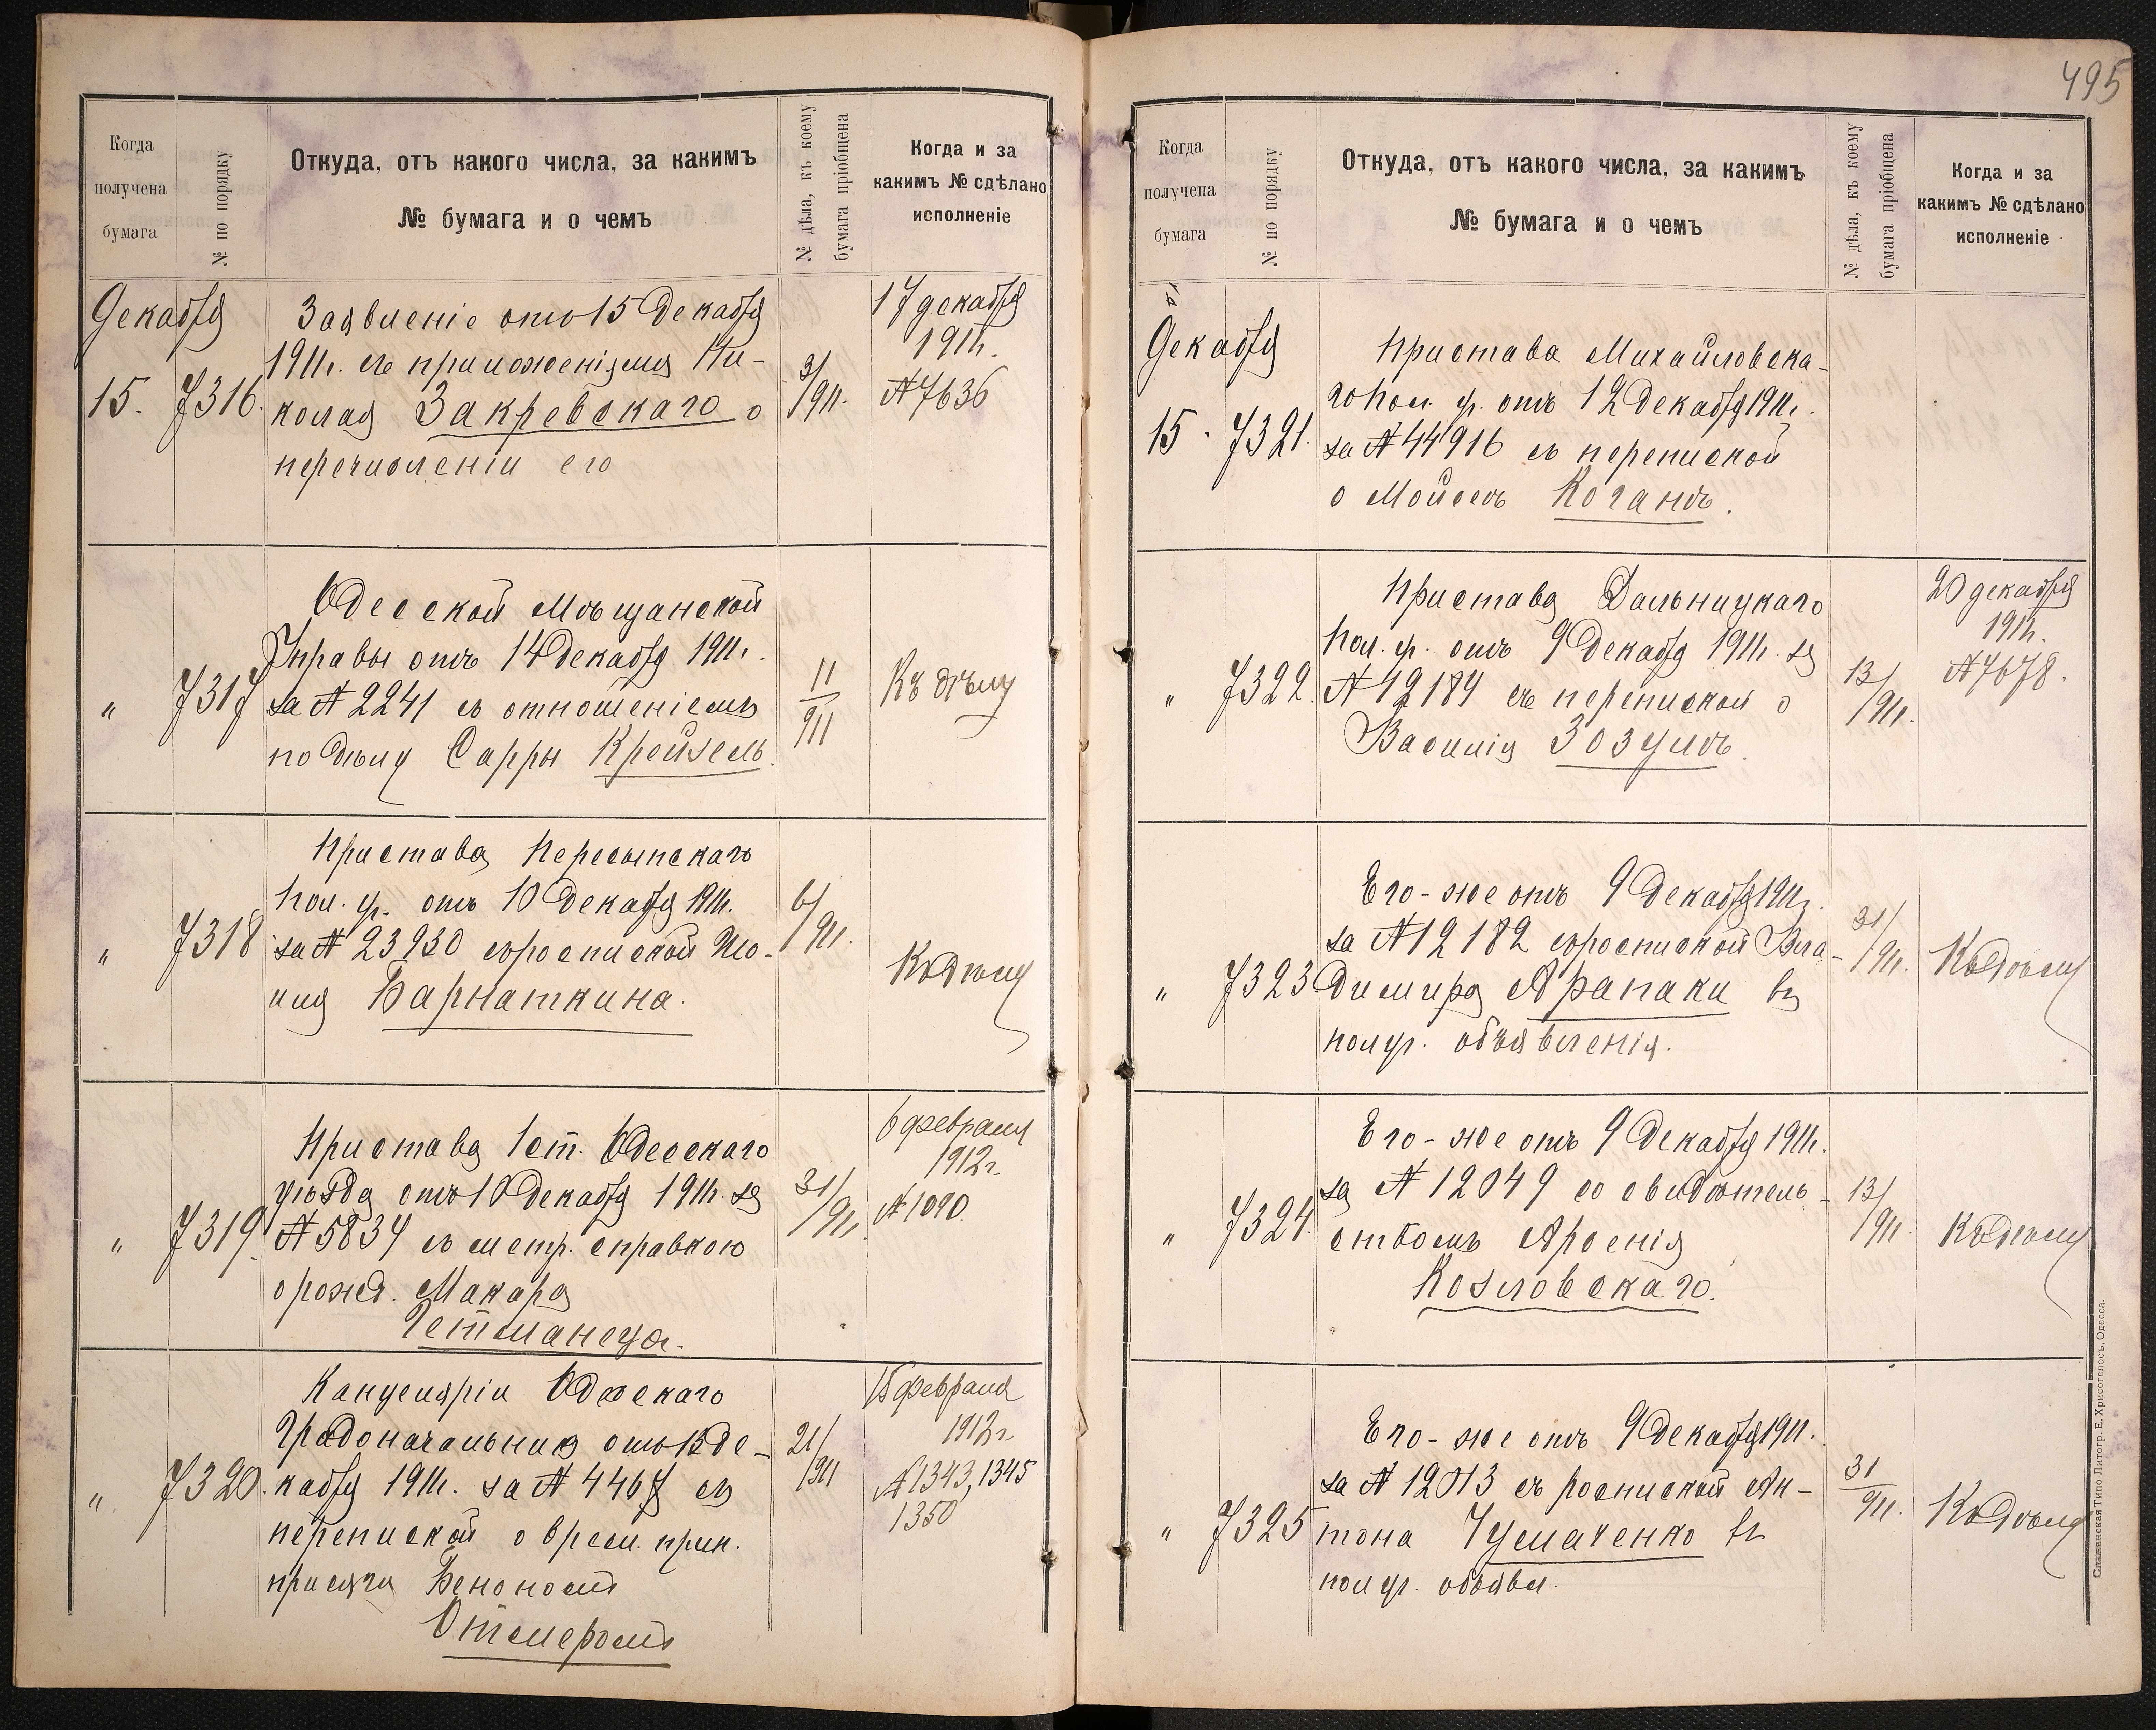 495
Когда
получена
бумага
№ по порядку
Откуда, отъ какого числа, за какимъ
№ бумага и о чемъ
№ дѣла, къ коему
бумага пріобщена
Когда и за
какимъ № сдѣлано
исполненіе
Декабря
15. 7316.
Заявленіе отъ 15 Декабря
1911г. съ приложеніями Ни-
колая Закревскаго о
перечисленіи его
3/911.
17 декабря
1911г.
№ 7636
" 7317
Одесской Мѣщанской
Управы отъ 14 Декабря 1911г.
за № 2241 съ отношеніемъ
по дѣлу Сарры Крейзель.
11/911
Къ дѣлу
" 7318
Пристава Пересыпскаго
пол. уч. отъ 10 Декабря 1911г.
за № 23930 съ роспиской
Барнаткина.
6/911.
Къ дѣлу
" 7319.
Пристава 1 ст. Одесскаго
уѣзда отъ 10 Декабря 1911г. за
№ 5834 съ метр. справкою
о рожд. Макара
Гетманеца.
31/911.
6 февраля
1912г.
№ 1090.
" 7320.
Канцеляріи Одесскаго
Градоначальника отъ 13 Де-
кабря 1911г. за № 4467 съ
перепиской о врем. прин.
присяги
21/911
15 февраля
1912г.
№ 1343, 1345
1350
Когда
получена
бумага
№ по порядку
Откуда, отъ какого числа, за какимъ
№ бумага и о чемъ
№ дѣла, къ коему
бумага пріобщена
Когда и за
какимъ № сдѣлано
исполненіе
Декабря
15. 7321.
Пристава Михайловска-
го пол. уч. отъ 12 Декабря 1911г.
за № 44916 съ перепиской
о Мойсеѣ Коганѣ.
" 7322.
Пристава Дальницкаго
пол. уч. отъ 9 Декабря 1911г. за
№ 12184 съ перепиской о
Василія Зозулѣ.
13/911.
20 декабря
1911г.
№ 7678.
" 7323
Его-же отъ 9 Декабря 1911г.
за № 12182 съ роспиской Вла-
димира Арапаки въ
получ. объявленія.
31/911.
Къ дѣлу
" 7324.
Его-же отъ 9 Декабря 1911г.
за № 12049 со свидѣтель-
ствомъ Арсенія
Козловскаго.
13/911.
Къ дѣлу
" 7325
Его-же отъ 9 Декабря 1911г.
за № 12013 съ роспиской Ан-
тона Чумаченко въ
получ. объявл.
31/911.
Къ дѣлу
Славянская Типо-Литогр. Е. Хрисогелосъ, Одесса.